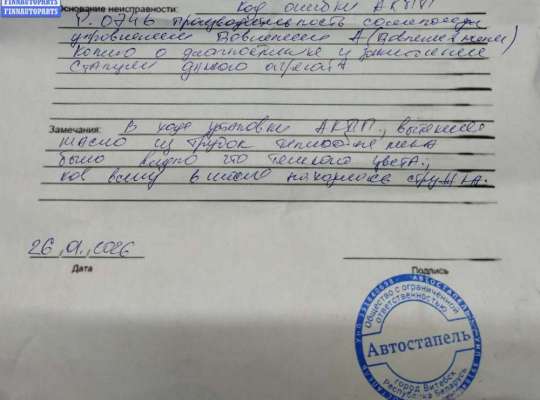 FINNAUTOPARTS
FINNAUTOPARTS
Основание неисправности: код ошибки АКПП
Р. 0746 производительность соленоида
управления Давлением А
копию о диагностике и заключении
станции данного агрегата
Замечания: В ходе установки АКПП, вытекшее
масло из трубок теплообменника
было видно что темного цвета,
в масле находилась стружка.
26.01.2026
Дата
Подпись
АВТОСТАПЕЛЬ
Общество с ограниченной
ответственностью
Автостапель
город Витебск
Республика Беларусь
УНП